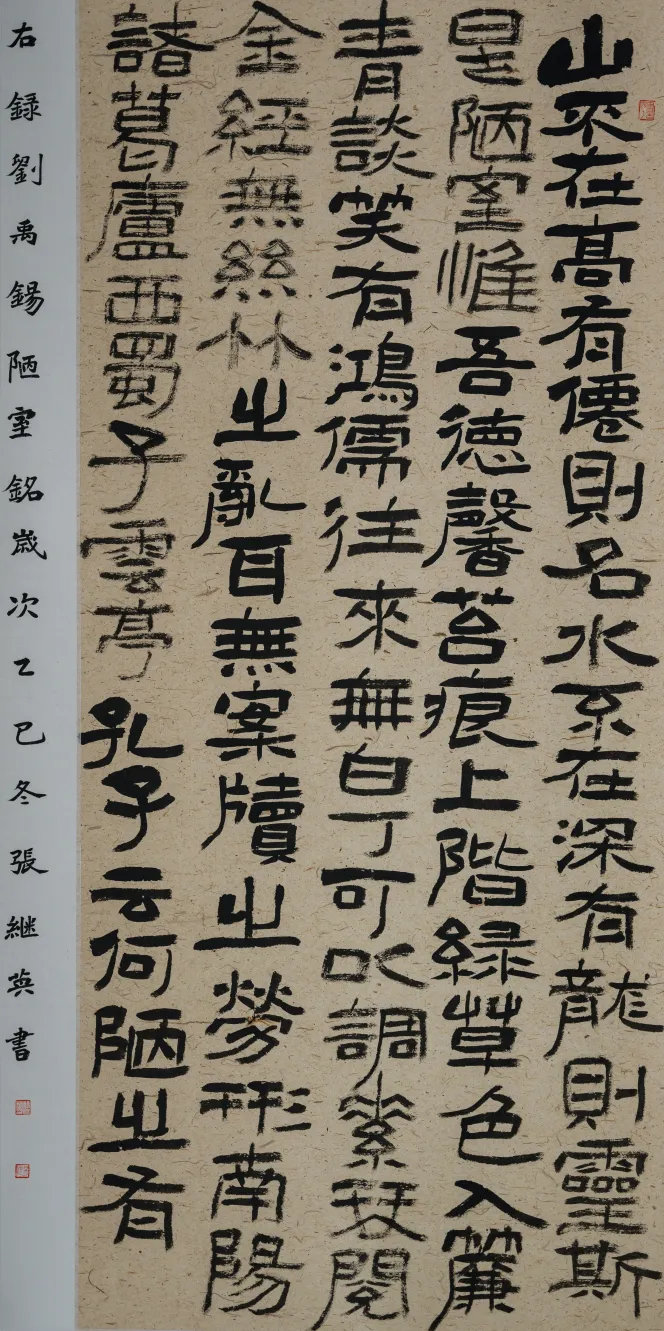 山不在高有僊則名水不在深有龍則靈斯
是陋室惟吾德馨苔痕上階緑草色入簾
青談笑有鴻儒往來無白丁可㕥調素琴閱
金經無絲竹之亂耳無案牘之勞形南陽
諸葛廬西蜀子雲亭孔子云何陋之有
右録劉禹錫陋室銘歲次乙巳冬張継英書